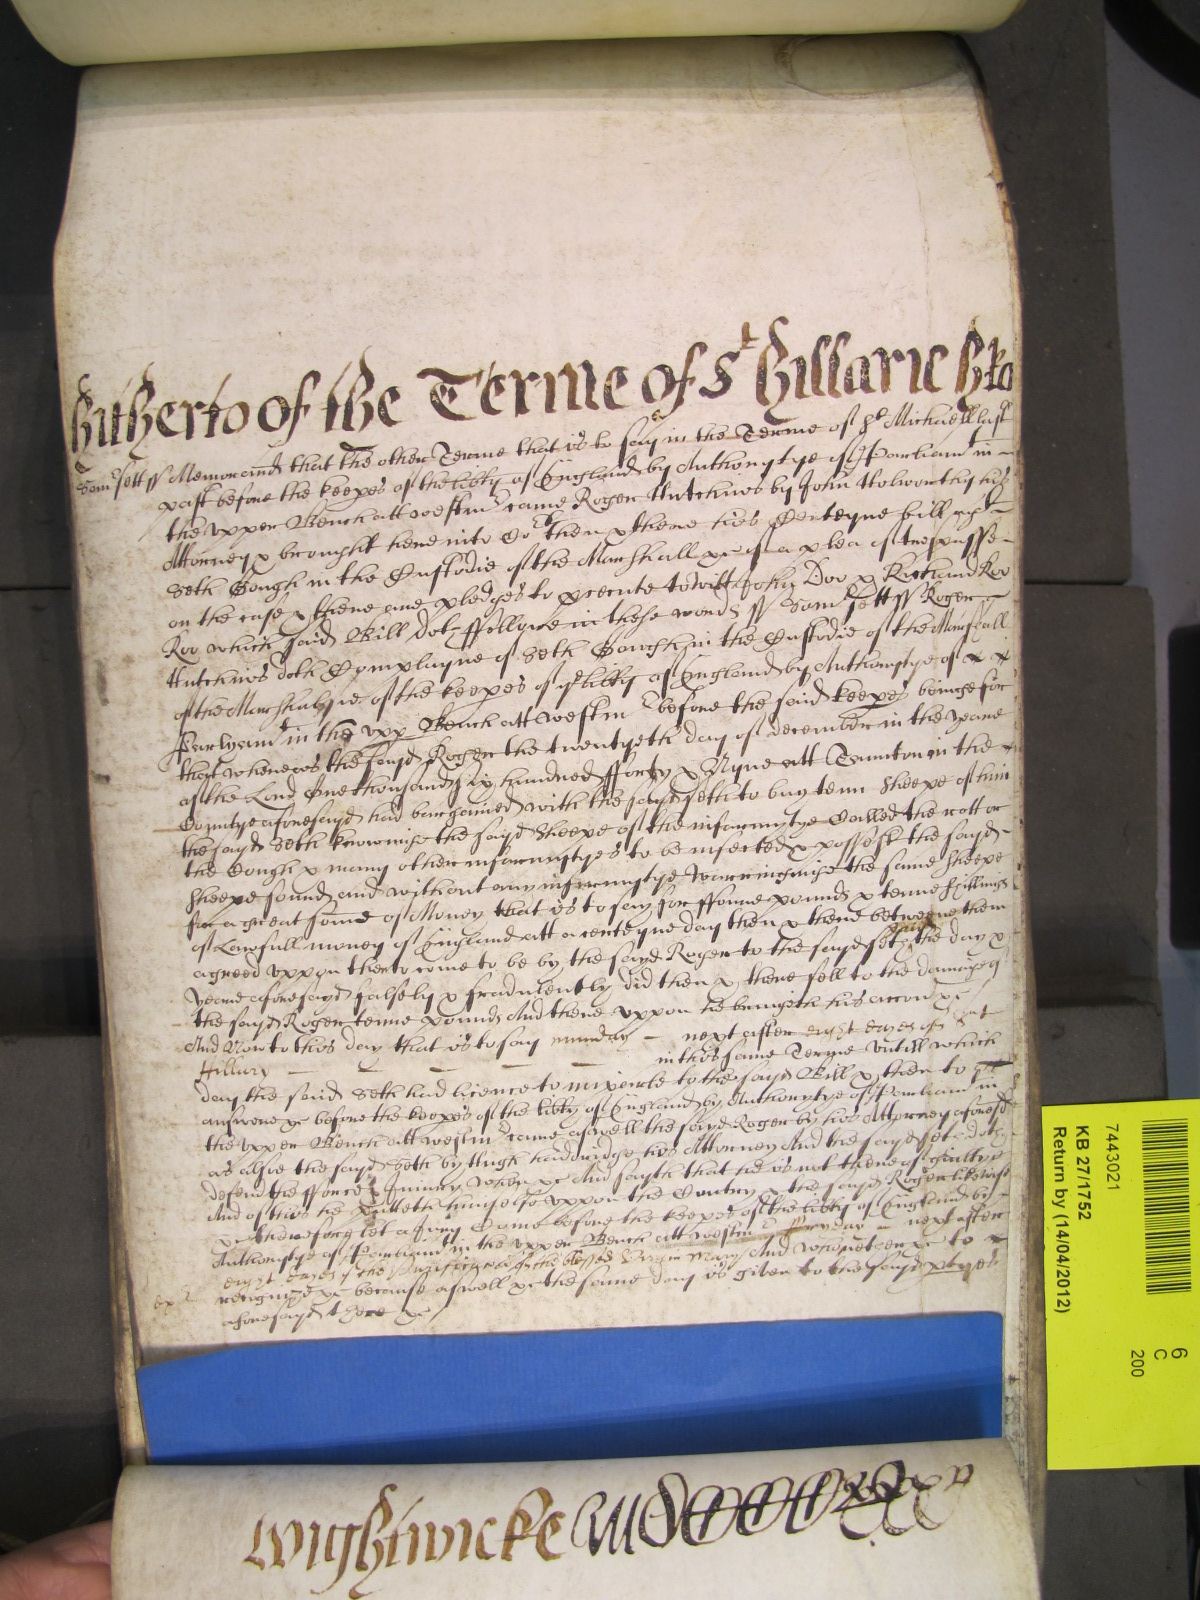 hitherto of the Terme of St Hillarie 1650
Som'sett ss Memorand that the other Terme that is to say in the Terme of St Michaell last
past before the keepers of the libty of England by Authoritye of Parliam' in
the vpper Bench att Westm' came Roger Hutchins by John Holworthy his
Attorney & brought here into Co't then & there his Certeyne bill agt
Seth Gough in the Custodie of the Marshall &c of a plea of trespasse
on the case & there are pledges to p'secute to witt John Doo & Richard Roo
which said Bill doth ffollowe in these words ss Som'sett ss Roger
Hutchins doth Complayne of Seth Gough in the Custodie of the Marshall
of the Marshalsie of the keepers of ye libty of England by Authoritye of
Parlyam' in the vpp Bench att Westm' before the said keepers beinge for
that whereas the sayd Roger the twentyeth day of december in the yeare
of the Lord One thousand six hundred fforty & Nyne att Taunton in the
Countye aforesayd had bargained with the sayd Seth to buy tenn Sheepe of him
the sayd Seth knowinge the sayd Sheepe of the infirmitye Called the rott or
the Cough & many other infirmityes to be infected & possest the sayd
Sheepe sound and without any infirmitye Warrantinge the same Sheepe
for a great some of Money that is to say for ffoure pounds & tenne shillings
of Lawfull money of England att a certeyne day then & there betweene them
agreed vppon then to come to be by the sayd Roger to the sayd Seth paid the day &
yeare aforesayd falsely & fraudulently did then & there sell to the damage of
the sayd Roger tenne pounds And there vppon he bringeth his accon &c
And Now to this day that is to say munday next after eight dayes of Saint
Hillary in this same Terme vntill which
day the said Seth had licence to imparle to the sayd Bill & then to
answere &c before the keepers of the libty of England by Authoritye of Parliam' in
the vpper Bench att Westm' came aswell the sayd Roger by his Attorney aforesd
as alsoe the sayd Seth by Hugh his Attorney And the sayd Seth doth
defend the fforce & Iniury when &c And sayth that he is not thereof guiltye
And of this he putteth himselfe vppon the Contry & the sayd Roger likewise
&c therefore let a Jury Come before the keepers of the libty of England by
Authoritye of Parliam' in the vpper Bench att Westm' on next after
eight dayes of the Purificacon of the blessed Virgin Mary And who neither &c to
recognize &c because aswell &c the same day is given to the sayd ptyes
aforesayd there &c
Wightwicke
7443021
KB 27/1752
Return by (14/04/2012)
6
C
200